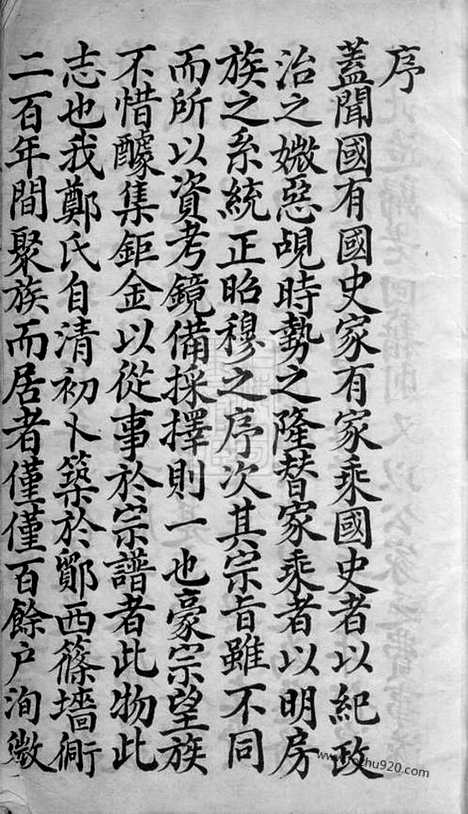 序
蓋聞國有國史家有家乘國史者以紀政
治之媺惡覘時勢之隆替家乘者以明房
族之系統正昭穆之序次其宗旨雖不同
而所以資考鏡備採擇則一也豪宗望族
不惜醵集鉅金以從事於宗譜者此物此
志也我鄭氏自清初卜築於鄮西篠墻衕
二百年間聚族而居者僅僅百餘戶洵